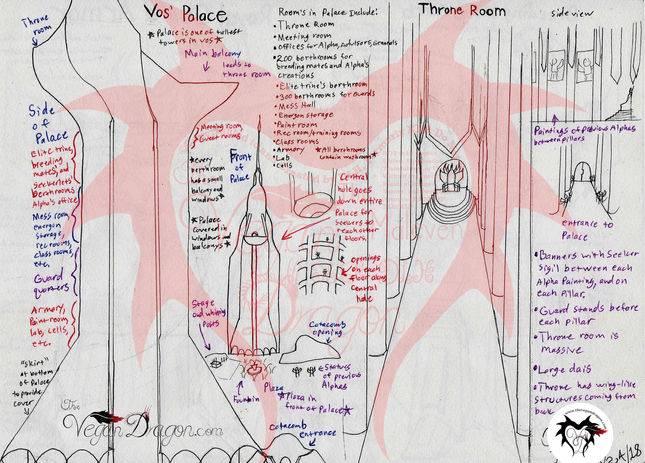 Throne
room
Vos' Palace
*Palace is one of tallest
towers in Vos*
Main balcony
leads to
throne room
Side
of
Palace
Elite trine,
breeding
mates, and
Seekerlets'
berthrooms
Alpha's office
Mess room,
energon
storage,
rec rooms,
class rooms,
etc.
Guard
quarters
Armory,
Paint room,
lab, cells,
etc.
"skirt"
at bottom
of Palace
to provide
cover
Meeting room
Guest rooms
*every
berthroom
has a small
balcony and
windows*
*Palace
covered in
windows and
balconys*
Front
of
Palace
Stage
and whipping
Posts
Fountain
Plaza
*Plaza in
front of Palace*
Catacomb
opening
Statues
of previous
Alphas
Catacomb
entrance
Room's in Palace Include:
• Throne Room
• Meeting room
• offices for Alpha, advisors, generals
• 200 berthrooms for
breeding mates and Alpha's
creations
• Elite trine's berthroom
• 300 berthrooms for Guards
• Mess Hall
• Energon storage
• Paint room
• Rec room/training rooms
• Class rooms
• Armory
• Lab
• Cells
*All berthrooms
contain washrooms*
Central
hole goes
down entire
Palace for
Seekers to
reach other
floors.
openings
on each
floor along
central
hole
Throne Room
side view
Paintings of previous Alphas
between pillars
entrance to
Palace
• Banners with Seeker
sigil between each
Alpha Painting, and on
each Pillar.
• Guard stands before
each pillar
• Throne room is
massive
• Large dais
• Throne has wing-like
structures coming from
back
The
VeganDragon.com